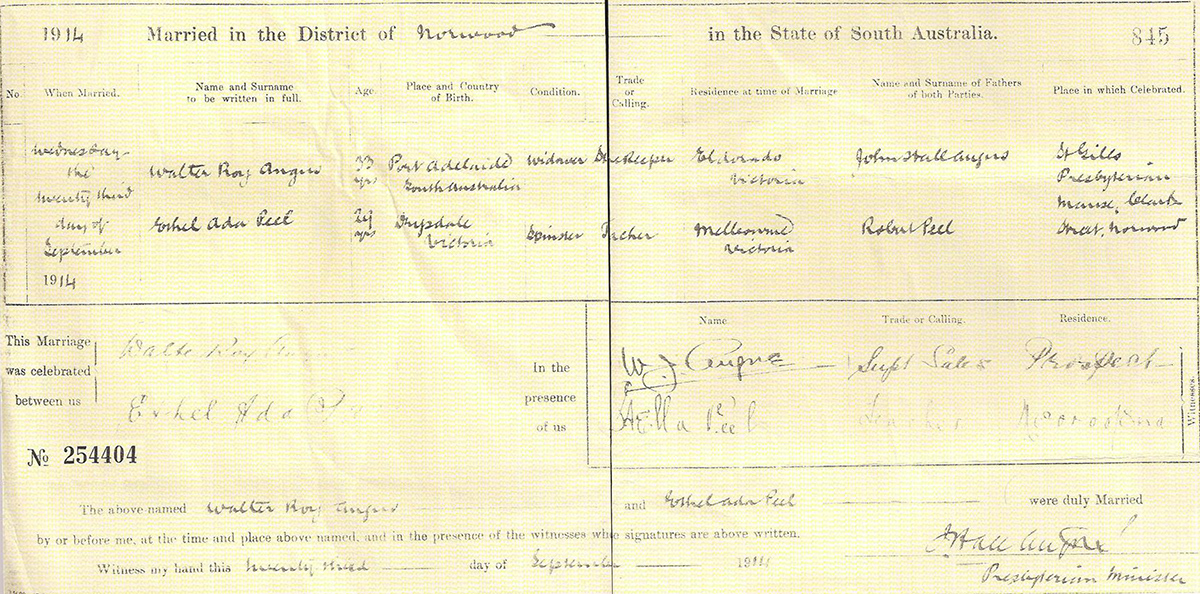 1914 Married in the District of Norwood in the State of South Australia. 845
No. When Married. Name and Surname to be written in full. Age. Place and Country of Birth. Condition. Trade or Calling. Residence at time of Marriage Name and Surname of Fathers of both Parties. Place in which Celebrated.
Wednesday
the
twenty third
day of
September
1914
Walter Roy Angus
33
yrs
Port Adelaide
South Australia
Widower
Storekeeper
Eldorado
Victoria
John Hall Angus
St Giles
Presbyterian
Manse, Clark
Street, Norwood
Ethel Ada Peel
yrs
Drysdale
Victoria
Spinster
Teacher
Victoria
Robert Peel
This Marriage
was celebrated
between us
Walter Roy Angus
Ethel Ada
In the
presence
of us
Name. Trade or Calling. Residence.
W. J. Angus Supt Sales Prospect
Peel Teacher Mooroopna
Witnesses.
No 254404
The above-named Walter Roy Angus and Ethel Ada Peel were duly Married
by or before me, at the time and place above named, and in the presence of the witnesses whose signatures are above written.
Witness my hand this twenty third day of September 1914
J Hall Angus
Presbyterian Minister